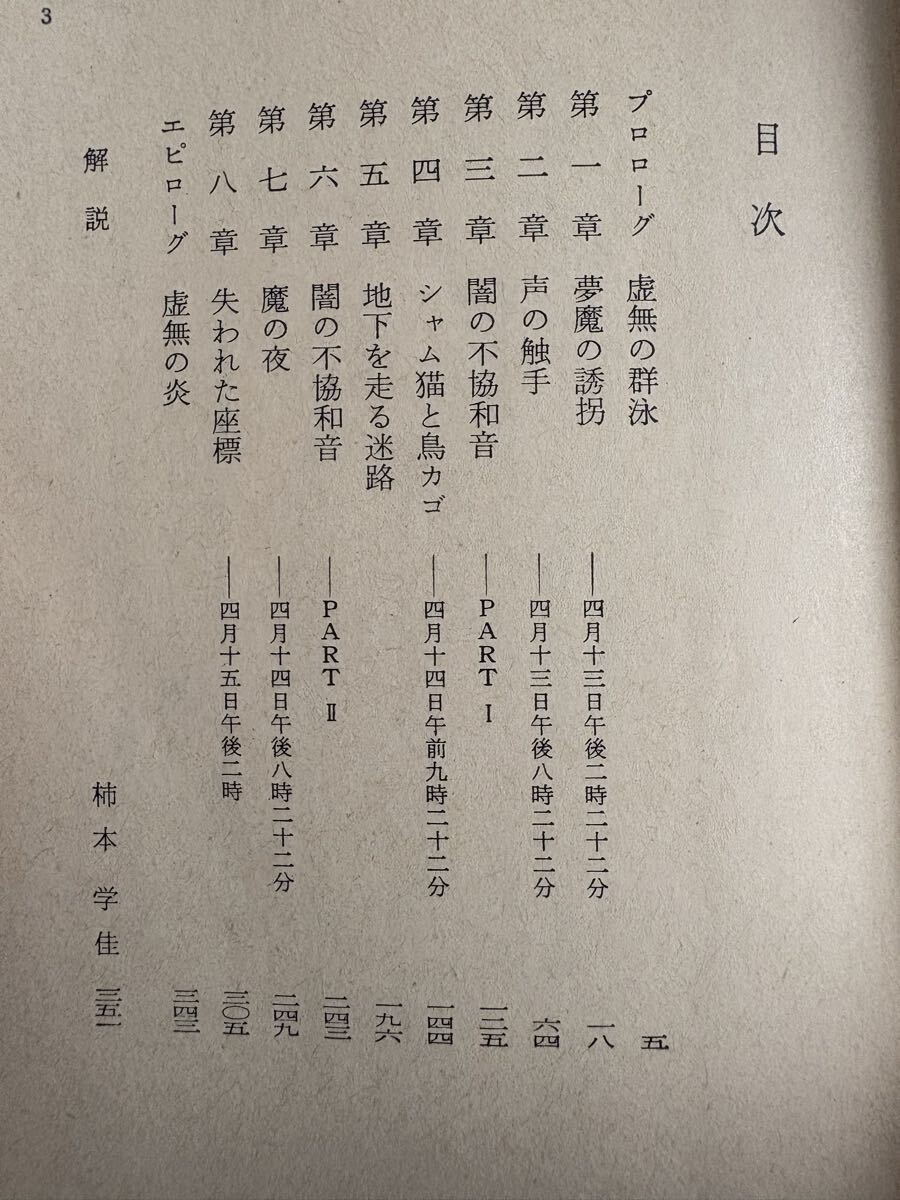 3
目次
プロローグ 虚無の群泳 五
第一章 夢魔の誘拐 ――四月十三日午後二時二十二分 一八
第二章 声の触手 ――四月十三日午後八時二十二分 六四
第三章 闇の不協和音 ――PART Ⅰ 一二五
第四章 シャム猫と鳥カゴ ――四月十四日午前九時二十二分 一四四
第五章 地下を走る迷路 一九六
第六章 闇の不協和音 ――PART Ⅱ 二四三
第七章 魔の夜 ――四月十四日午後八時二十二分 二四九
第八章 失われた座標 ――四月十五日午後二時 三〇五
エピローグ 虚無の炎 三四三
解説 柿本学佳 三五一